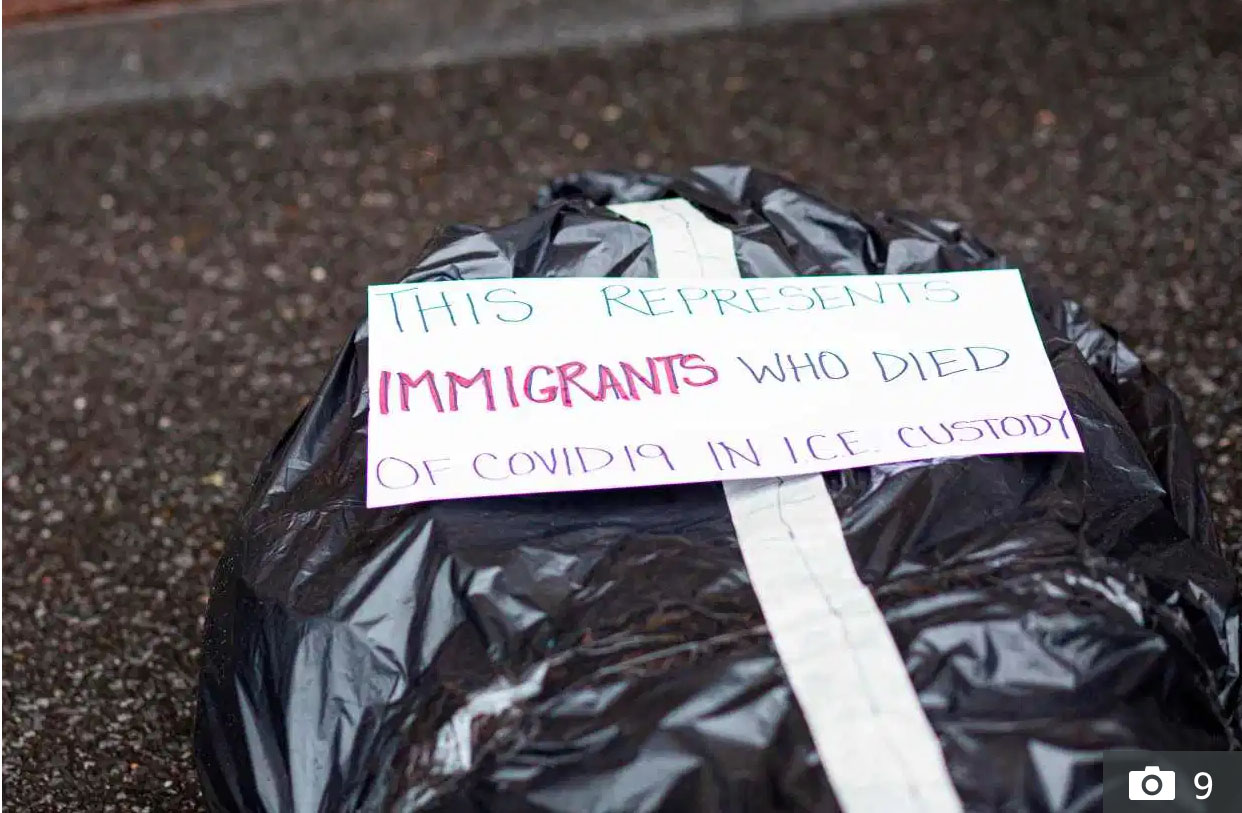 THIS REPRESENTS
IMMIGRANTS WHO DIED
OF COVID19 IN I.C.E. CUSTODY
9